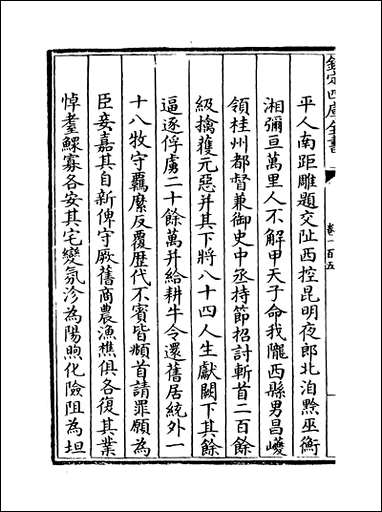 欽定四庫全書
卷一百五
平人南距雕題交阯西控昆明夜郎北洎黔巫衡
湘彌亘萬里人不解甲天子命我隴西縣男昌巙
領桂州都督兼御史中丞持節招討斬首二百餘
級擒獲元惡并其下將八十四人生獻闕下其餘
逼逐俘虜二十餘萬并給耕牛令還舊居統外一
十八牧守羈縻反覆歷代不賓皆頫首請罪願為
臣妾嘉其自新俾守厥舊商農漁樵俱各復其業
悼耄鰥寡各安其宅變氛沴為陽煦化險阻為坦